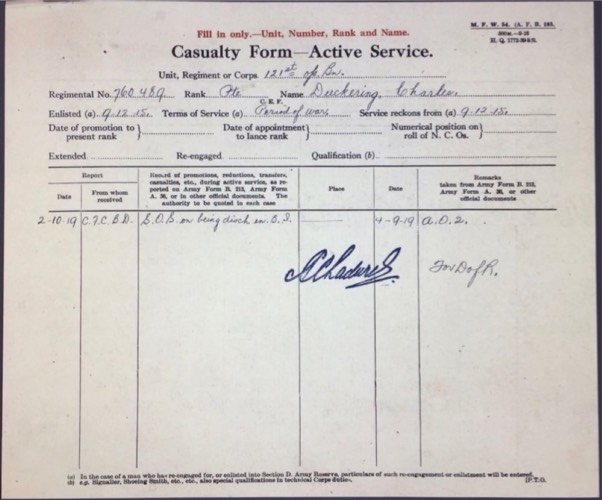 M. F. W. 54. (A. F. B. 103.
H. Q. 1772-39-920.
Fill in only.—Unit, Number, Rank and Name.
Casualty Form—Active Service.
Unit, Regiment or Corps. 121st Bn.
Regimental No. 760489. Rank Pte Name Duckering, Charles.
C. E. F.
Enlisted (a) 9.12.15. Terms of Service (a) Period of war Service reckons from (a) 9.12.15.
Date of promotion to present rank } Date of appointment to lance rank } Numerical position on roll of N. C. Os. }
Extended Re-engaged Qualification (b)
Report
Date
From whom received
Record of promotions, reductions, transfers, casualties, etc., during active service, as reported on Army Form B. 213, Army Form A. 36, or in other official documents. The authority to be quoted in each case
Place
Date
Remarks
taken from Army Form B. 213, Army Form A. 36, or other official documents
2-10-19 C.F.C.B.D. S.O.S. on being disch in B.I. 4-9-19 A.O.2.
for D of R.
(a) In the case of a man who has re-engaged for, or enlisted into Section D. Army Reserve, particulars of such re-engagement or enlistment will be entered.
(b) e.g. Signaller, Shoeing Smith, etc., etc., also special qualifications in technical Corps duties. [P.T.O.